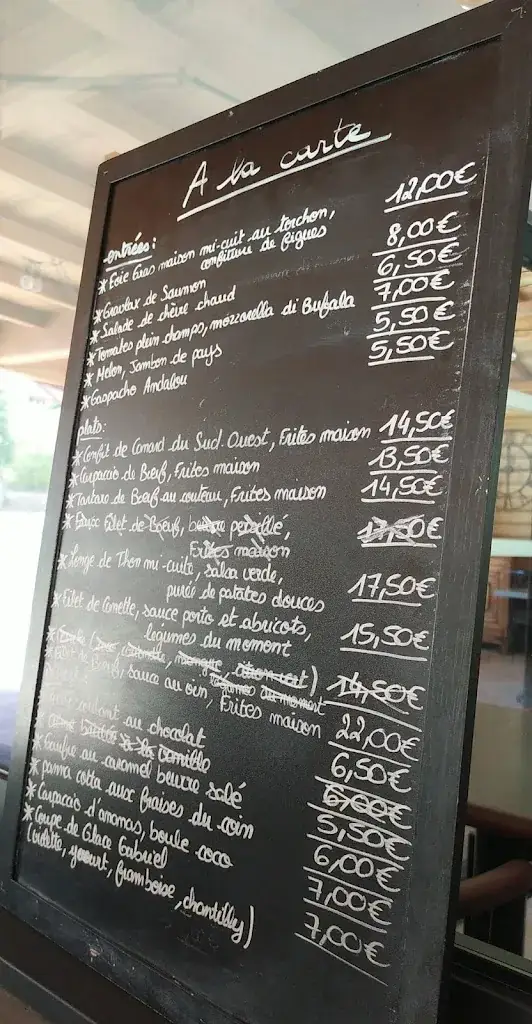 A la carte
entrées:
* Foie Gras maison mi-cuit au torchon, 12,00€
confiture de figues
* Gravlax de Saumon 8,00€
* Salade de chèvre chaud 6,50€
* Tomates plein champs, mozzarella di Bufala 7,00€
* Melon, Jambon de pays 5,50€
* Gaspacho Andalou 5,50€
plats:
* Confit de Canard du Sud Ouest, Frites maison 14,50€
* Carpaccio de Bœuf, Frites maison 13,50€
* Tartare de Bœuf au couteau, Frites maison 14,50€
Filet de Bœuf, persillé, 17,50€
Frites maison
* Longe de Thon mi-cuite, salsa verde, 17,50€
purée de patates douces
* Filet de Canette, sauce porto et abricots, 15,50€
legumes du moment
mangue, citron vert) 14,50€
legumes du moment
de Bœuf, sauce au vin, Frites maison 22,00€
coulant au chocolat 6,50€
brûlée à la vanille 6,00€
* Gaufre au caramel beurre salé 5,50€
* panna cotta aux fraises du coin 6,00€
* Carpaccio d'ananas, boule coco 7,00€
* Coupe de Glace Gabriel 7,00€
(violette, yaourt, framboise, chantilly)